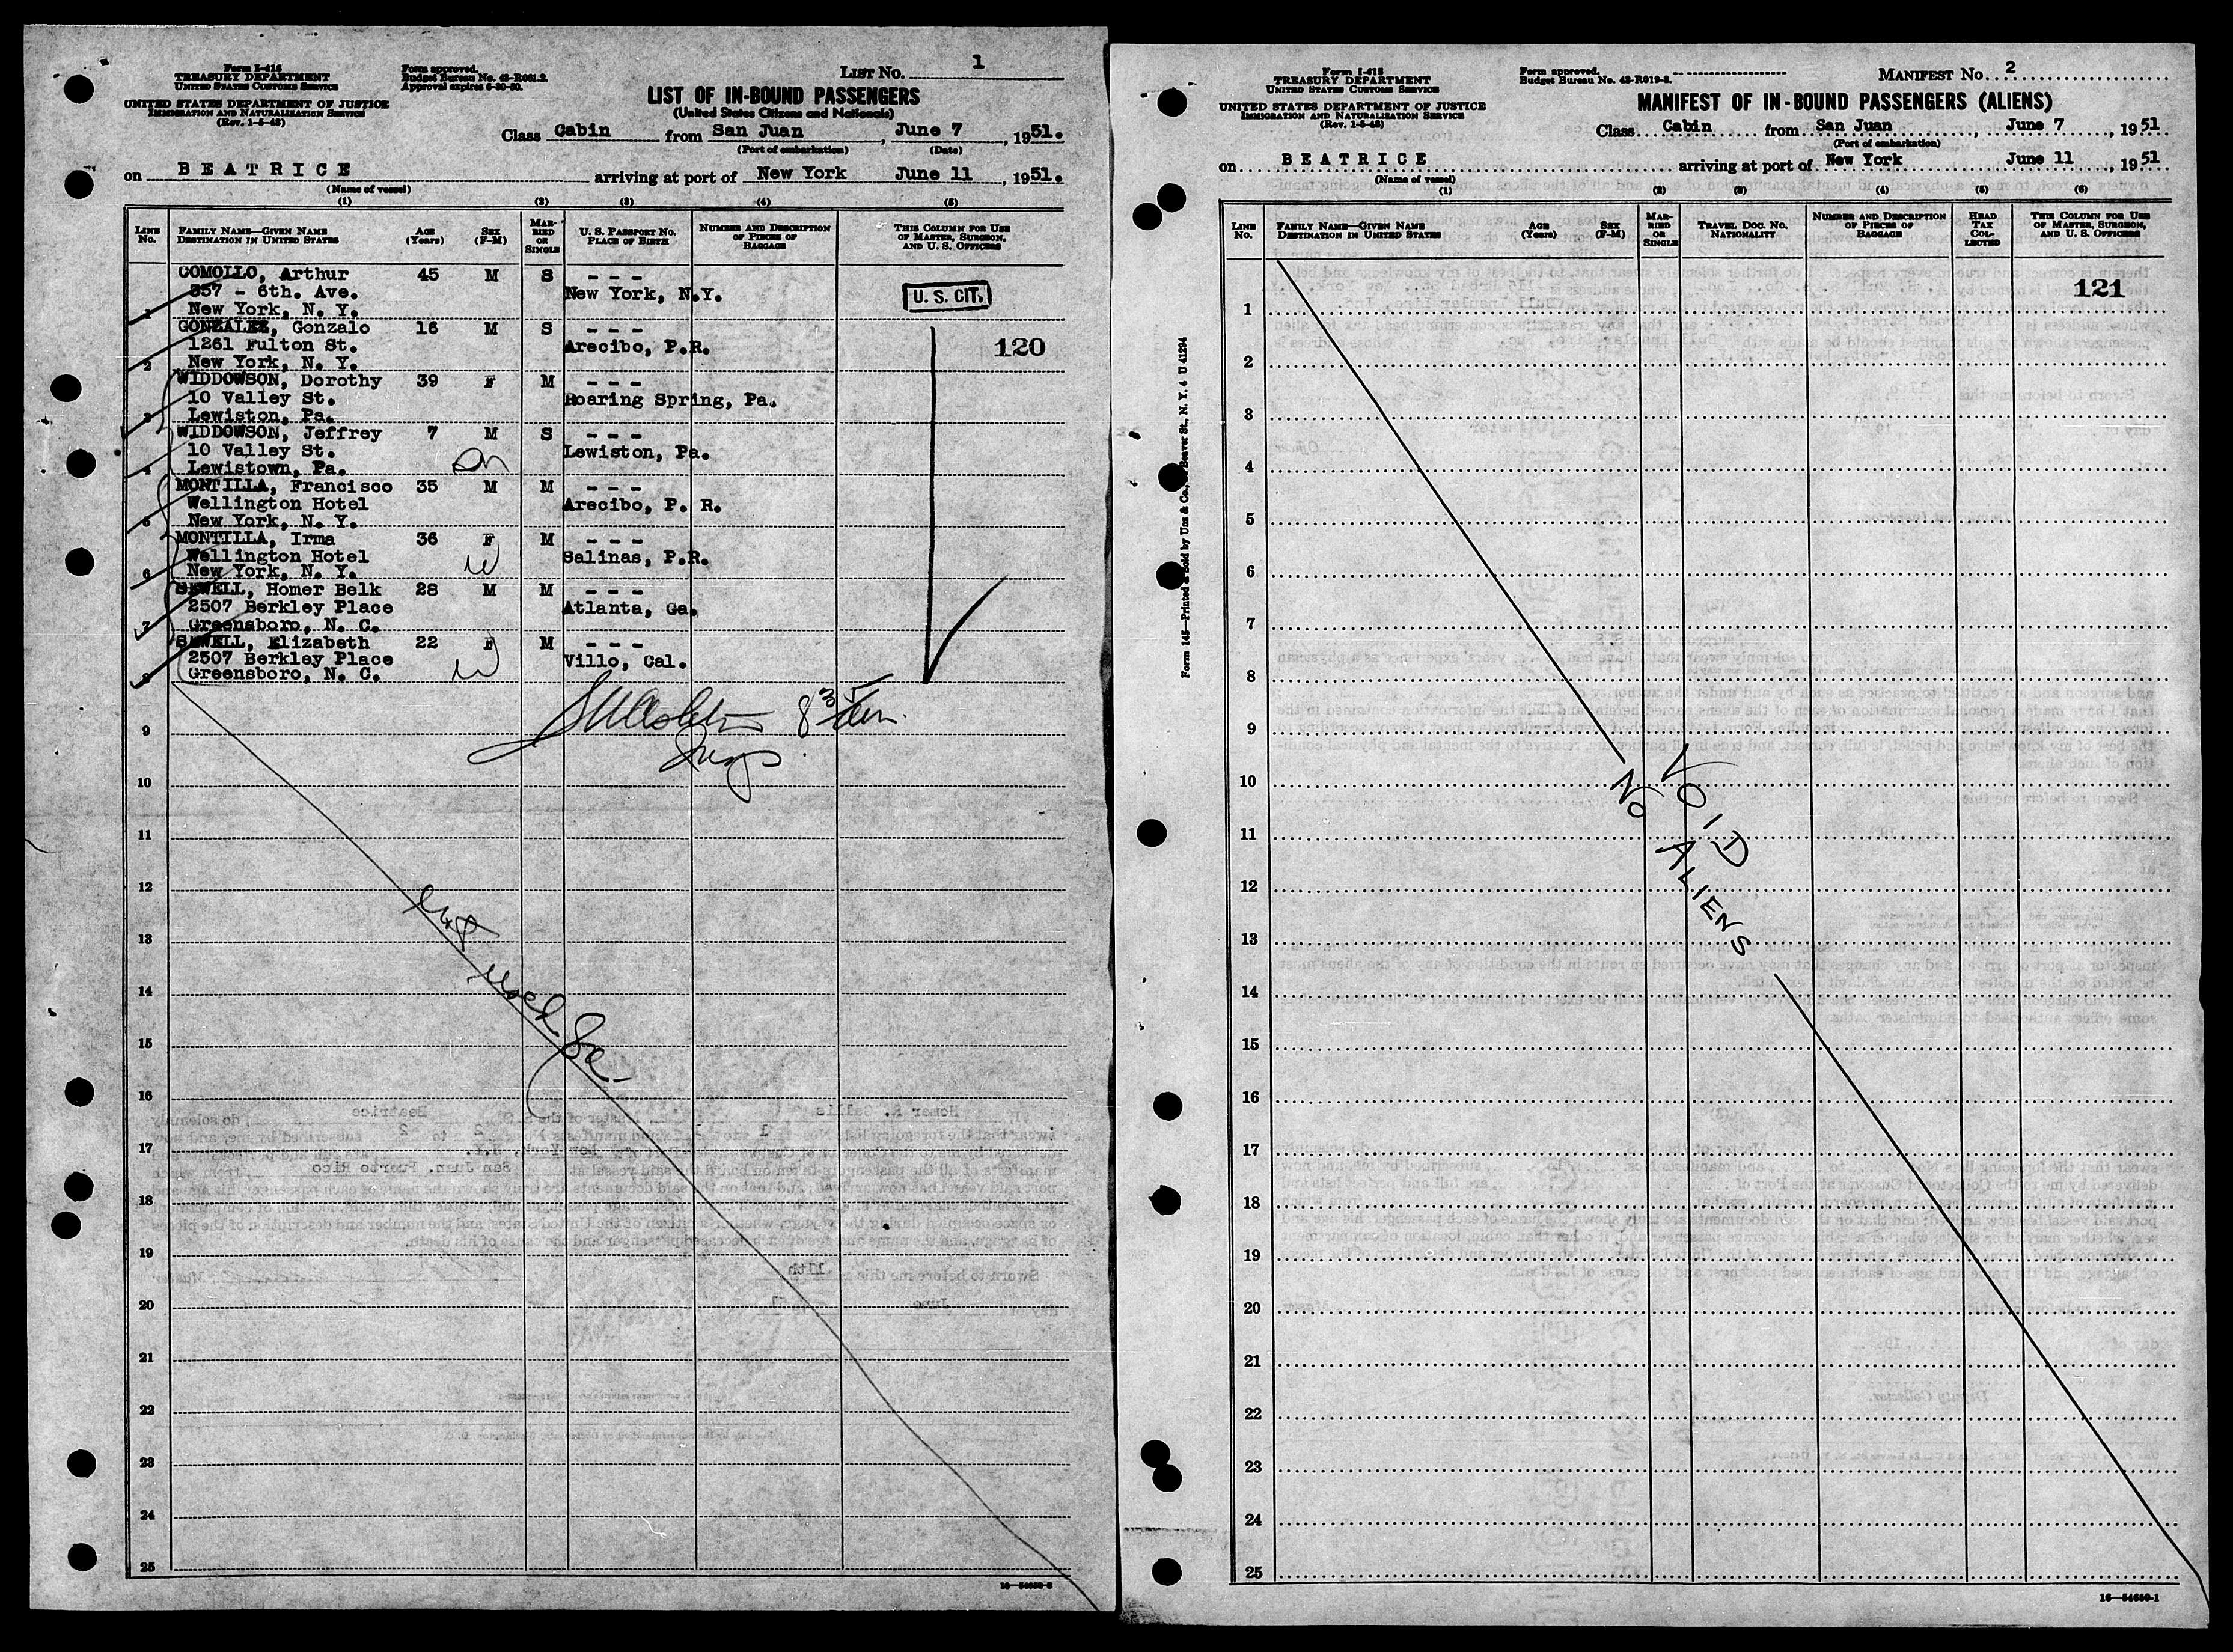 Form I-416
TREASURY DEPARTMENT
UNITED STATES CUSTOMS SERVICE
UNITED STATES DEPARTMENT OF JUSTICE
IMMIGRATION AND NATURALIZATION SERVICE
(Rev. 1-5-48)
Form approved.
Budget Bureau No. 43-R081.2.
Approval expires 6-30-50.
LIST NO. 1
LIST OF IN-BOUND PASSENGERS
(United States Citizens and Nationals)
Class Cabin from San Juan, June 7, 1951.
(Port of embarkation) (Date)
on BEATRICE arriving at port of New York June 11, 1951.
(Name of vessel)
(1) (2) (3) (4) (5)
LINE No. FAMILY NAME—GIVEN NAME DESTINATION IN UNITED STATES AGE (Years) SEX (F-M) MARRIED OR SINGLE U. S. PASSPORT NO. PLACE OF BIRTH NUMBER AND DESCRIPTION OF PIECES OF BAGGAGE THIS COLUMN FOR USE OF MASTER, SURGEON, AND U. S. OFFICERS
COMOLLO, Arthur 45 M S - - -
357 - 6th. Ave. New York, N.Y. U. S. CIT.
1 New York, N. Y.
GONZALEZ, Gonzalo 16 M S - - -
1261 Fulton St. Arecibo, P.R. 120
2 New York, N. Y.
WIDDOWSON, Dorothy 39 F M - - -
10 Valley St. Roaring Spring, Pa.
3 Lewiston, Pa.
WIDDOWSON, Jeffrey 7 M S - - -
10 Valley St. Lewiston, Pa.
4 Lewistown, Pa.
MONTILLA, Francisco 35 M M - - -
Wellington Hotel Arecibo, P. R.
5 New York, N. Y.
MONTILLA, Irma 36 F M - - -
Wellington Hotel Salinas, P.R.
6 New York, N. Y.
SEWELL, Homer Belk 28 M M - - -
2507 Berkley Place Atlanta, Ga.
7 Greensboro, N. C.
SEWELL, Elizabeth 22 F M - - -
2507 Berkley Place Villo, Cal.
8 Greensboro, N. C.
9
10
11
12
13
14
15
16
17
18
19
20
21
22
23
24
25
Form I-415
TREASURY DEPARTMENT
UNITED STATES CUSTOMS SERVICE
UNITED STATES DEPARTMENT OF JUSTICE
IMMIGRATION AND NATURALIZATION SERVICE
(Rev. 1-5-48)
Form approved.
Budget Bureau No. 43-R019-2.
MANIFEST No. 2
MANIFEST OF IN-BOUND PASSENGERS (ALIENS)
Class Cabin from San Juan, June 7, 1951
(Port of embarkation)
on BEATRICE arriving at port of New York June 11, 1951
(Name of vessel)
(1) (2) (3) (4) (5) (6)
LINE No. FAMILY NAME—GIVEN NAME DESTINATION IN UNITED STATES AGE (Years) SEX (F-M) MARRIED OR SINGLE TRAVEL DOC. NO. NATIONALITY NUMBER AND DESCRIPTION OF PIECES OF BAGGAGE HEAD TAX COLLECTED THIS COLUMN FOR USE OF MASTER, SURGEON, AND U. S. OFFICERS
121
1
2
3
4
5
6
7
8
9
10
11
12
13
14
15
16
17
18
19
20
21
22
23
24
25
VOID
NO ALIENS
16—54650-1